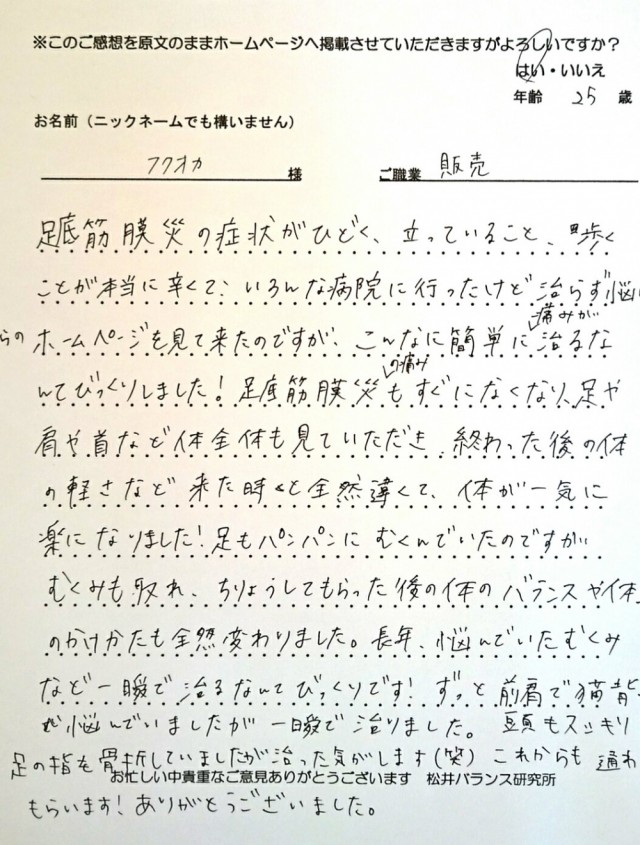 ※このご感想を原文のままホームページへ掲載させていただきますがよろしいですか？
はい・いいえ
年齢 25 歳
お名前（ニックネームでも構いません）
フクオカ 様 ご職業 販売
足底筋膜炎の症状がひどく、立っていること、歩く
ことが本当に辛くて、いろんな病院に行ったけど治らず悩
痛みが
らの ホームページを見て来たのですが、こんなに簡単に治るな
の痛み
んてびっくりしました！足底筋膜炎もすぐになくなり、足や
肩や首など体全体も見ていただき 終わった後の体
の軽さなど 来た時と全然違くて、体が一気に
楽になりました！足もパンパンにむくんでいたのですが
むくみも取れ、ちりょうしてもらった後の体のバランスや体
のかけかたも全然変わりました。長年、悩んでいたむくみ
など一瞬で治るなんてびっくりです！ずっと前肩で猫背
で悩んでいましたが一瞬で治りました。頭もスッキリ
足の指を骨折していましたが治った気がします（笑）これからも通わ
お忙しい中貴重なご意見ありがとうございます 松井バランス研究所
もらいます！ありがとうございました。